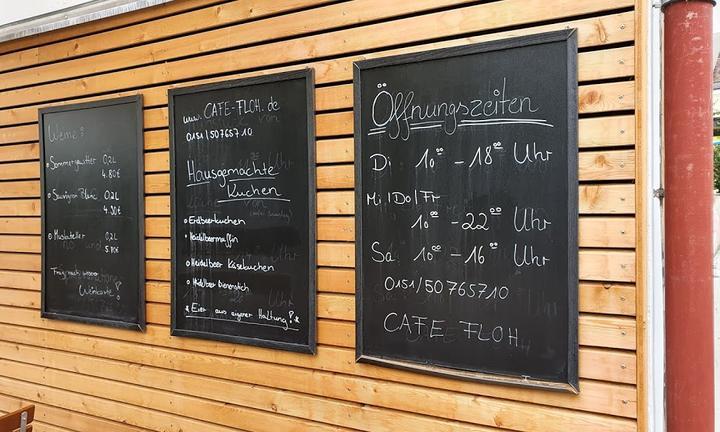 Weine:
Sommergewitter 0,2L
4.80€
Sauvignon Blanc 0,2L
4.90€
Muskateller 0,2L
5.10€
Fragt nach unserer
Weinkarte!
www.CAFE-FLOH.de
0151/50765710
Hausgemachte
Kuchen
Erdbeerkuchen
Heidelbeermuffin
Heidelbeer Käsekuchen
Heidelbeer Bienenstich
* Eier aus eigener Haltung! *
Öffnungszeiten
Di 10⁰⁰ - 18⁰⁰ Uhr
Mi|Do|Fr
10⁰⁰ - 22⁰⁰ Uhr
Sa 10⁰⁰ - 16⁰⁰ Uhr
0151/50765710
CAFE FLOH